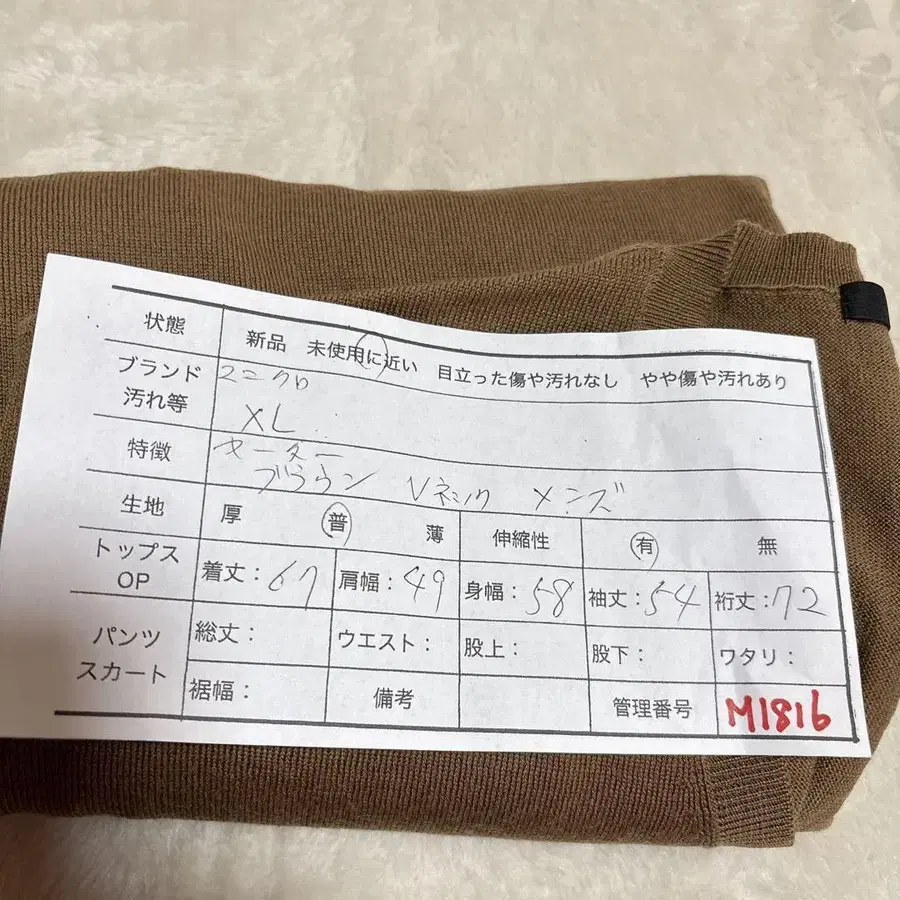 状態 新品 未使用に近い 目立った傷や汚れなし やや傷や汚れあり
ブランド ユニクロ
汚れ等 XL
特徴 セーター
ブラウン Vネック メンズ
生地 厚 普 薄 伸縮性 有 無
トップス
OP 着丈:67 肩幅:49 身幅:58 袖丈:54 裄丈:72
パンツ
スカート 総丈: ウエスト: 股上: 股下: ワタリ:
裾幅: 備考 管理番号 M1816